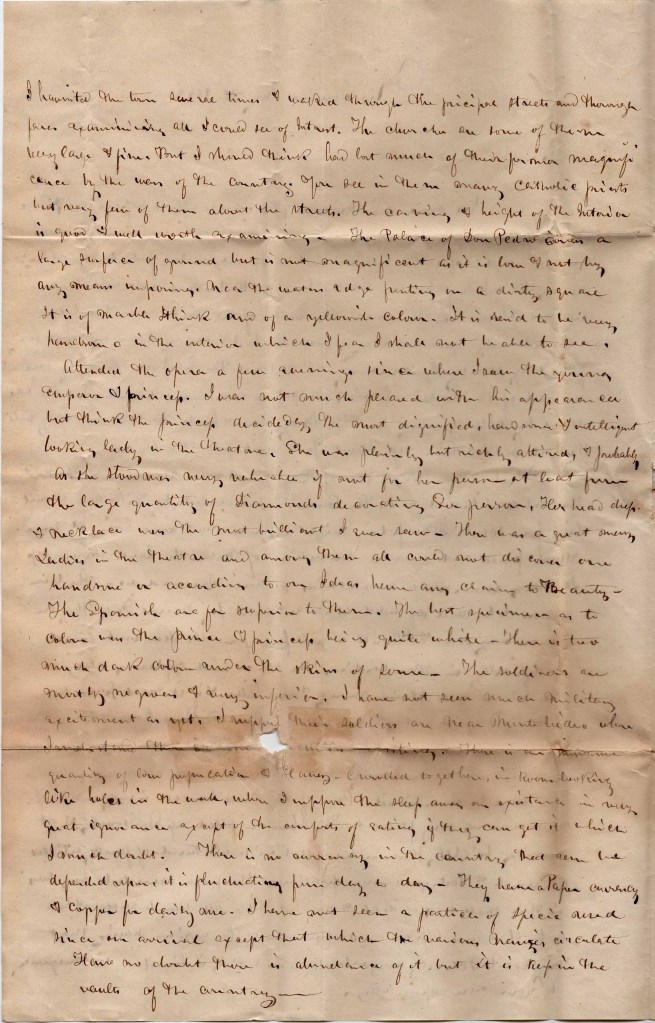 I haunted the town several times & walked through the pricipal streets and thorough
fares examining all I could see of Interest. The churches are some of them
very large & fine. But I should think had lost much of their former magnifi
cence by the wars of the country. You see in them many Catholic priests
but very few of them about the streets. The carving & height of the Interior
is good & well worth examining - The Palace of Don Pedro covers a
large surface of ground but is not magnificent as it is low & not by
any means imposing. Near the waters edge fronting on a dirty square
It is of marble I think and of a yellowish colour - it is said to be very
handsome in the interior which I fear I shall not be able to see.
Attended the opera a few evenings since where I saw the young
Emperor & princess. I was not much pleased with his appearance
but think the princess decidedly the most dignified, handsome & intelligent
looking lady in the Theatre. She was plainly but richly attired, & probably
As she stood was very valuable if not for her person at least from
the large quantity of Diamonds decorating her person, Her head dress
& necklace was the most brilliant I ever saw - There was a great many
Ladies in the Theatre and among them all could not discover one
handsome or according to our Ideas have any claim to Beauty -
The Spanish are far superior to them. The best specimen as to
colour was the prince & princess being quite white - There is too
much dark colour under the skins of some - The soldiers are
mostly negroes & very inferior. I have not seen much military
excitement as yet. I suppose their soldiers are near Montevideo where
I understand There is an immense
quantity of low population & slaves - huddled together, in rooms looking
like holes in the wall, where I suppose the sleep away an existence in very
great ignorance except of the comforts of eating if they can get it which
I much doubt. There is no currency in the country that can be
depended upon, it is fluctuating from day to day - They have a Paper currency
& copper for daily use. I have not seen a particle of specie used
since our arrival except that which the various circulate
Have no doubt there is abundance of it but it is kep in the
vaults of the country -